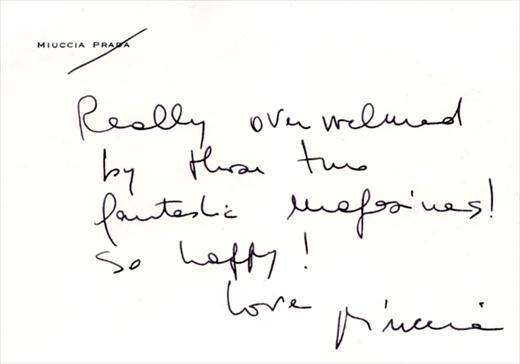 MIUCCIA PRADA
Really overwelmed
by those two
fantastic magazines!
So happy!
Love Miuccia